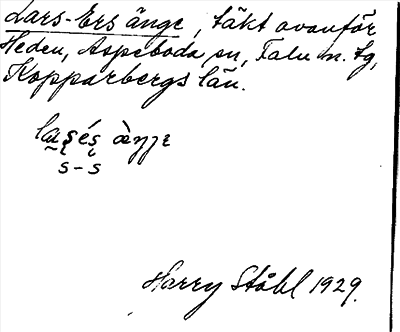 Lars-Ers änge, täkt ovanför
Heden, Aspeboda sn, Falu n. tg,
Kopparbergs län.
s-s
Harry Ståhl 1929.